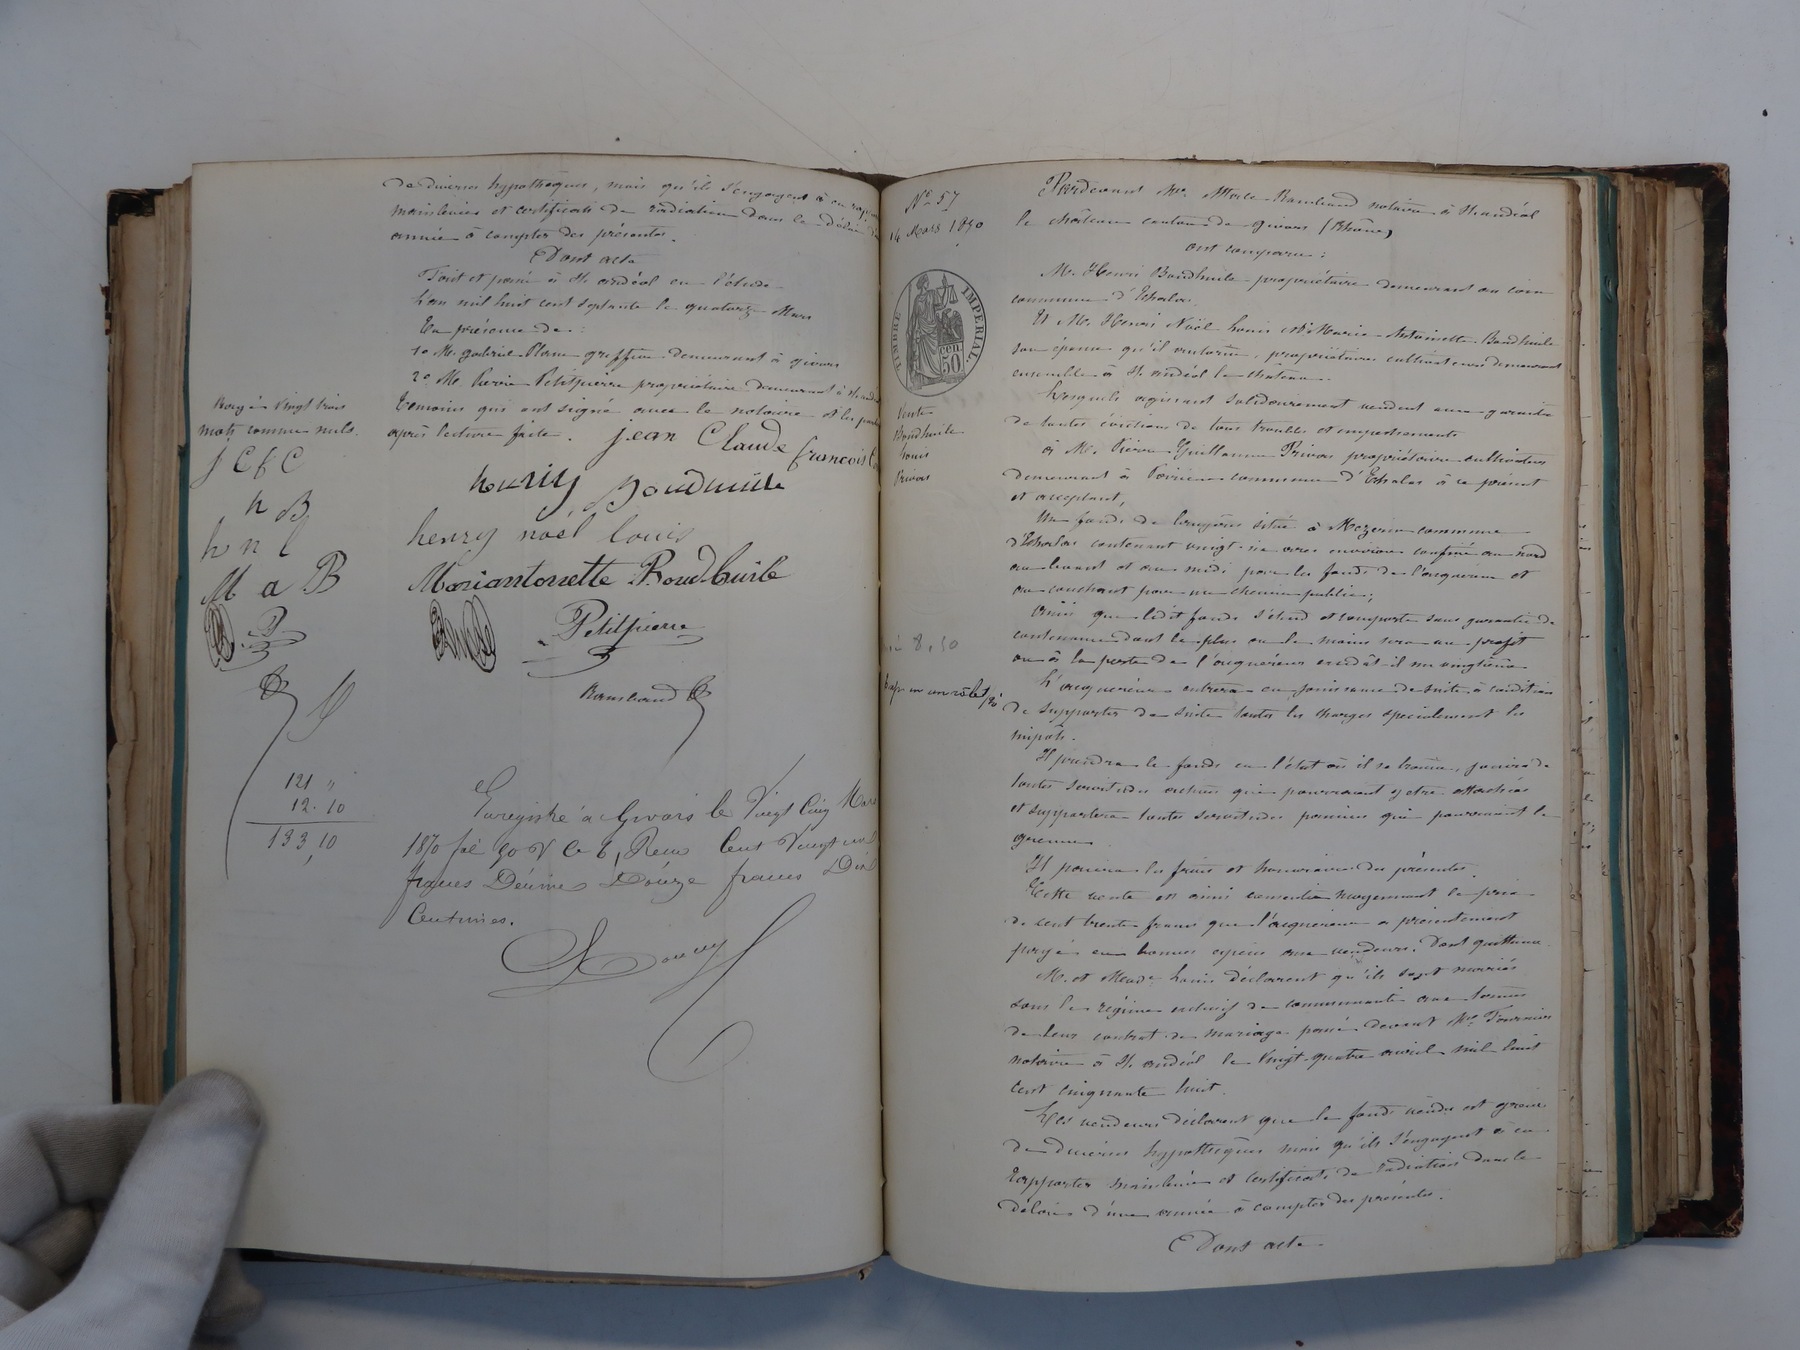 de diverses hypothèques, mais qu'ils s'engagent à en
mainlevées et certificats de radiation dans le délai
année à compter des présentes.
Dont acte
Fait et passé à St. andéol en l'étude
L'an mil huit cent septante le quatorze Mars
En présence de :
1o M. gabriel Plan greffier demeurant à givors
2o M. Pierre Petitpierre propriétaire demeurant à St andéol
témoins qui ont signé avec le notaire et les parties
après lecture faite. jean Claude françois
henry Boudhuile
henry noël louis
Mariantonette Boudhuile
Petitpierre
Rambaud
Rayé Vingt trois
mots comme nuls.
J C f C
h B
h n l
M a B
P
121 "
12. 10
133, 10
Enregistré à Givors le Vingt Cinq Mars
1870 fol 90 V C 6, Reçu Cent Vingt un
francs Décime Douze francs Dix
Centimes.
No 57
14 Mars 1870
TIMBRE IMPERIAL
50 cen
Vente
Boudhuile
Louis
Privas
8,50
Exp. en un rôle
Pardevant Me. Rambaud notaire à St andéol
le château canton de givors (Rhône)
ont comparu :
M. Henri Boudhuile propriétaire demeurant au coin
commune d'Echalas.
Et M. Henri Noël Louis et Marie Antoinette Boudhuile
son épouse qu'il autorise, propriétaires cultivateurs demeurant
ensemble à St. andéol le château.
Lesquels agissant solidairement vendent avec garantie
de toutes évictions de tous troubles et empêchements
à M. Pierre Guillaume Privas propriétaire cultivateur
demeurant à commune d'Echalas à ce présent
et acceptant,
Un fonds de bruyères situé à Mezerin commune
d'Echalas contenant vingt-six ares environ confiné au nord
au levant et au midi par les fonds de l'acquéreur et
au couchant par un chemin public;
ainsi que ledit fonds s'étend et comporte sans garantie de
contenance dont le plus ou le moins sera au profit
ou à la perte de l'acquéreur excédât-il un vingtième
L'acquéreur entrera en jouissance de suite à condition
de supporter de suite toutes les charges spécialement les
impôts.
Il prendra le fonds en l'état où il se trouve, jouira de
toutes servitudes actives qui pourraient y être attachées
et supportera toutes servitudes passives qui pourraient le
grever.
Il paiera les frais et honoraires des présentes.
Cette vente est ainsi consentie moyennant le prix
de cent trente francs que l'acquéreur a présentement
payé en bonnes espèces aux vendeurs. Dont quittance
M. et Made Louis déclarent qu'ils sont mariés
sous le régime exclusif de communauté aux termes
de leur contrat de mariage passé devant Me Fournier
notaire à St. andéol le Vingt-quatre avril mil huit
cent cinquante huit.
Les vendeurs déclarent que le fonds vendu est grevé
de diverses hypothèques mais qu'ils s'engagent à en
rapporter mainlevée et certificats de radiation dans le
délai d'une année à compter des présentes.
Dont acte